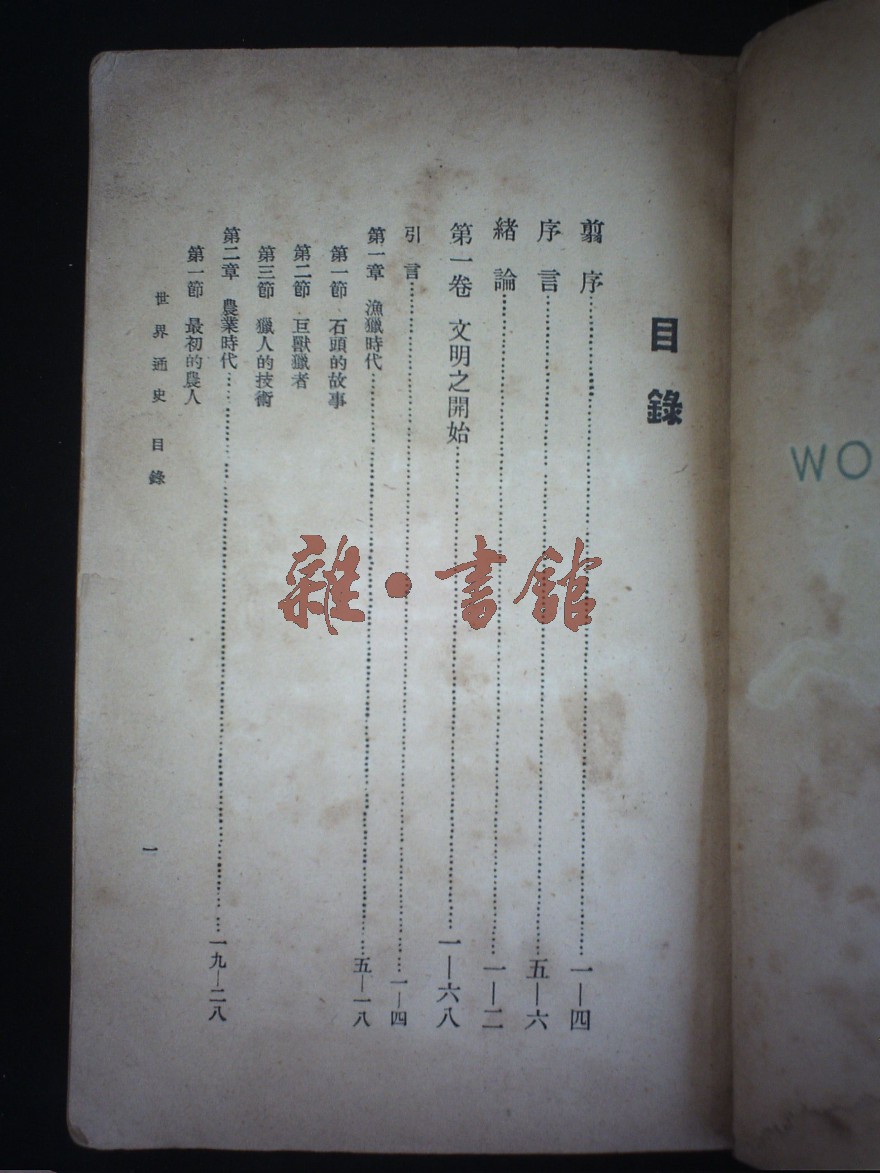 目錄
翦序……一—四
序言……五—六
緒論……一—二
第一卷 文明之開始……一—六八
引言……一—四
第一章 漁獵時代……五—一八
第一節 石頭的故事
第二節 巨獸獵者
第三節 獵人的技術
第二章 農業時代……一九—二八
第一節 最初的農人
世界通史 目錄
一
雜·書館
WO